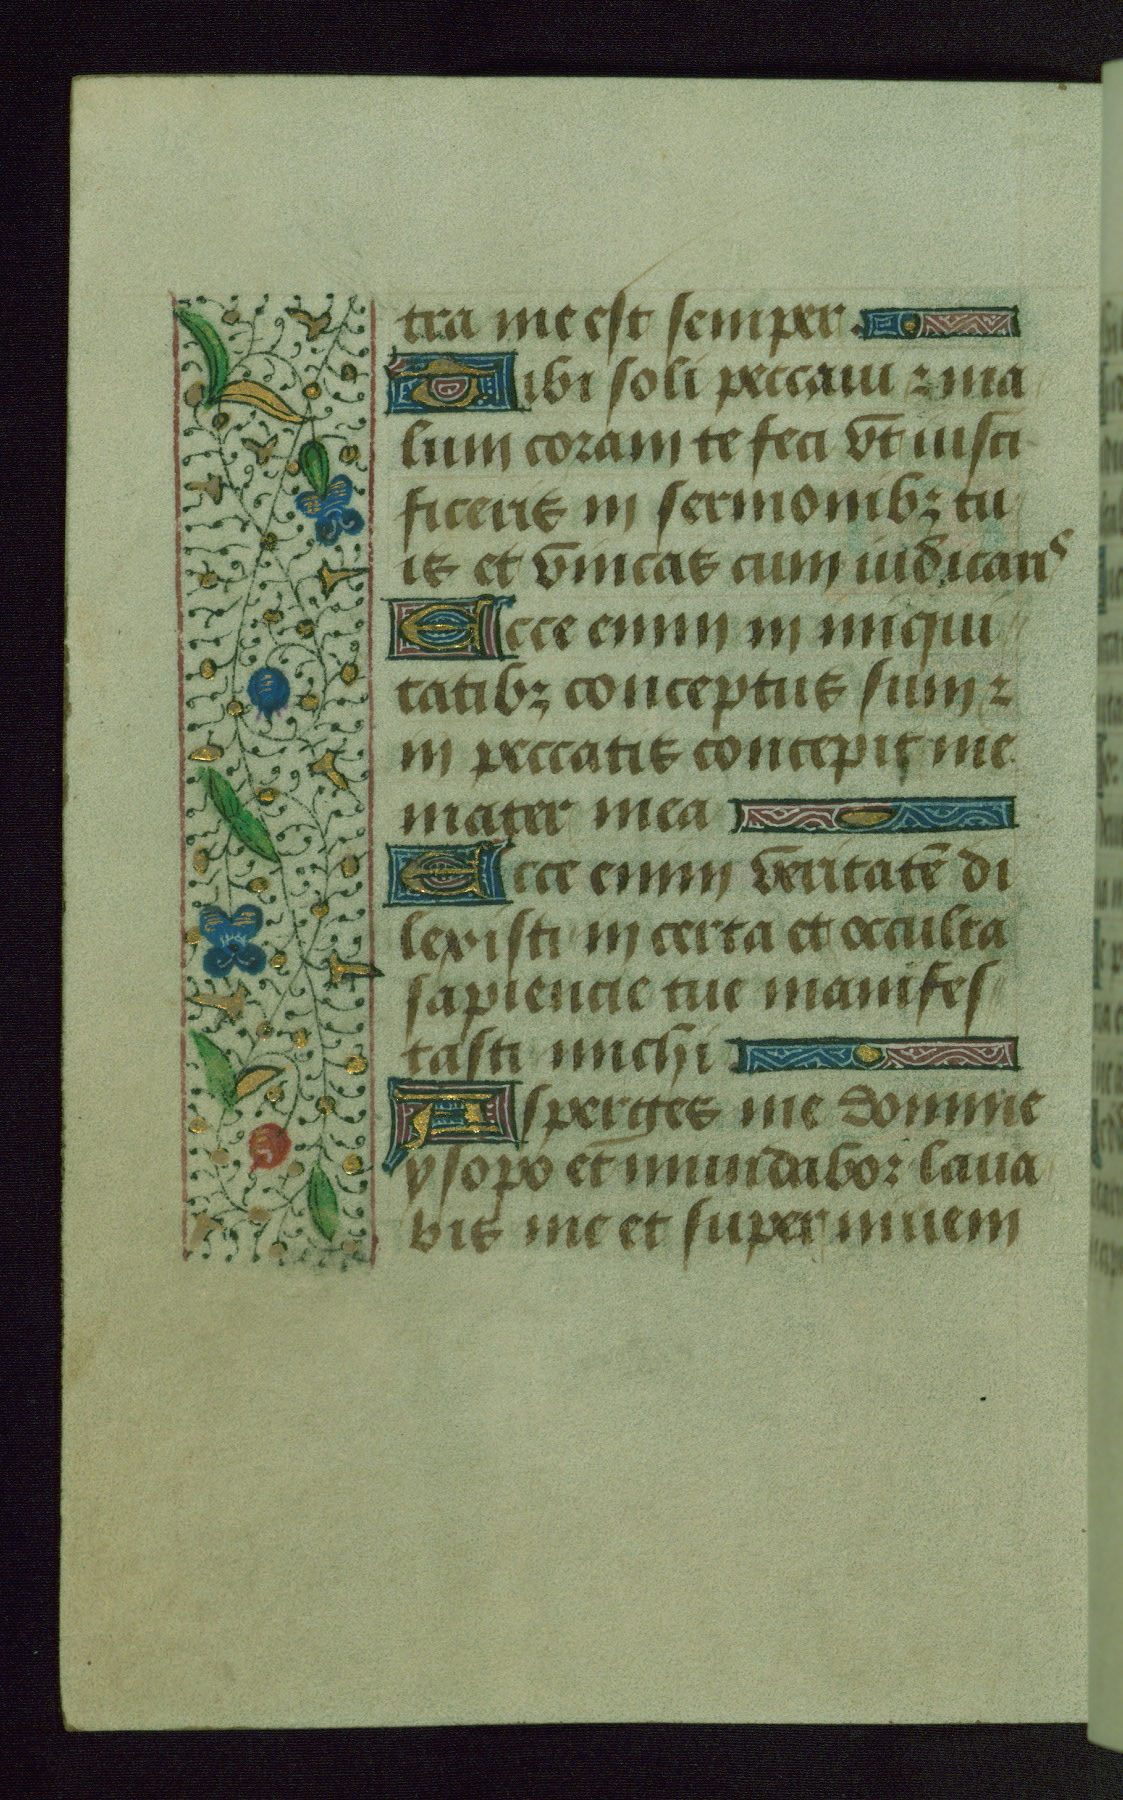 tra me est semper.
Tibi soli peccaui ⁊ ma
lum coram te feci vt iusti
ficeris in sermonibꝫ tu
is et vincas cum iudicaris
Ecce enim in iniqui
tatibꝫ conceptus sum ⁊
in peccatis concepit me
mater mea
Ecce enim veritatē di
lexisti incerta et occulta
sapiencie tue manifes
tasti michi
Asperges me domine
ysopo et mundabor laua
bis me et super niuem